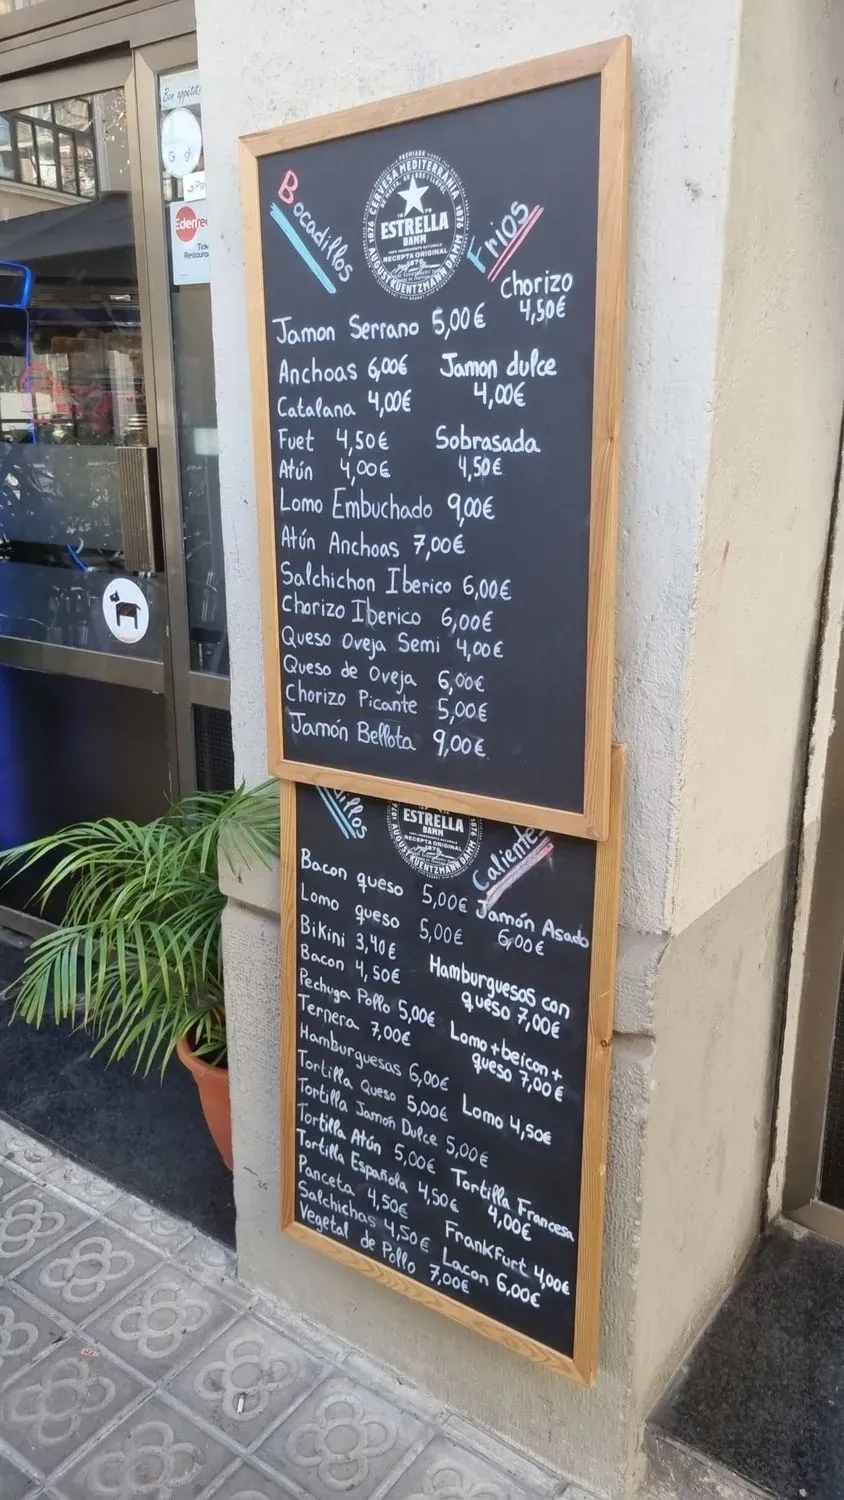 Bon appétit!
Edenred
Ticket
Restaurant
Bocadillos
Frios
CERVESA MEDITERRÀNIA
PREMIADA
1876
1876
ESTRELLA
DAMM
RECEPTA ORIGINAL
AUGUST KUENTZMANN DAMM
Chorizo
4,50€
Jamon Serrano 5,00€
Anchoas 6,00€ Jamon dulce
4,00€
Catalana 4,00€
Fuet 4,50€ Sobrasada
4,50€
Atún 4,00€
Lomo Embuchado 9,00€
Atún Anchoas 7,00€
Salchichon Iberico 6,00€
Chorizo Iberico 6,00€
Queso Oveja Semi 4,00€
Queso de Oveja 6,00€
Chorizo Picante 5,00€
Jamón Bellota 9,00€
illos
Calientes
1876
1876
ESTRELLA
DAMM
RECEPTA ORIGINAL
AUGUST KUENTZMANN DAMM
Bacon queso 5,00€ Jamón Asado
6,00€
Lomo queso 5,00€
BiKini 3,40€
Bacon 4,50€ Hamburguesas con
queso 7,00€
Pechuga Pollo 5,00€
Ternera 7,00€ Lomo+beicon+
queso 7,00€
Hamburguesas 6,00€
Tortilla Queso 5,00€ Lomo 4,50€
Tortilla Jamon Dulce 5,00€
Tortilla Atún 5,00€
Tortilla Española 4,50€ Tortilla Francesa
4,00€
Panceta 4,50€
Salchichas 4,50€ FranKFurt 4,00€
Vegetal de Pollo 7,00€
Lacon 6,00€